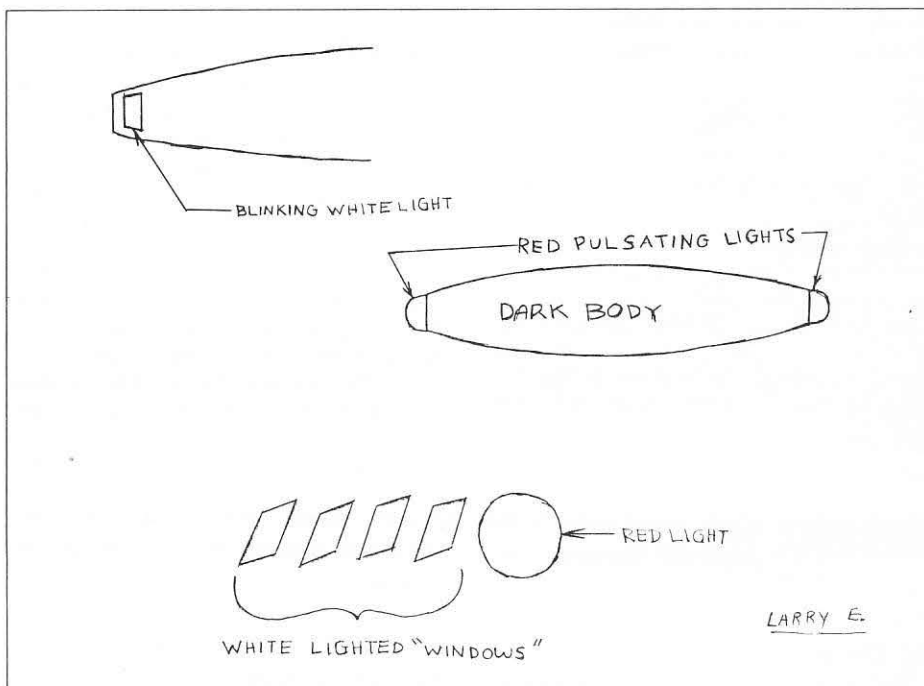 BLINKING WHITE LIGHT
RED PULSATING LIGHTS
DARK BODY
RED LIGHT
WHITE LIGHTED "WINDOWS"
LARRY E.